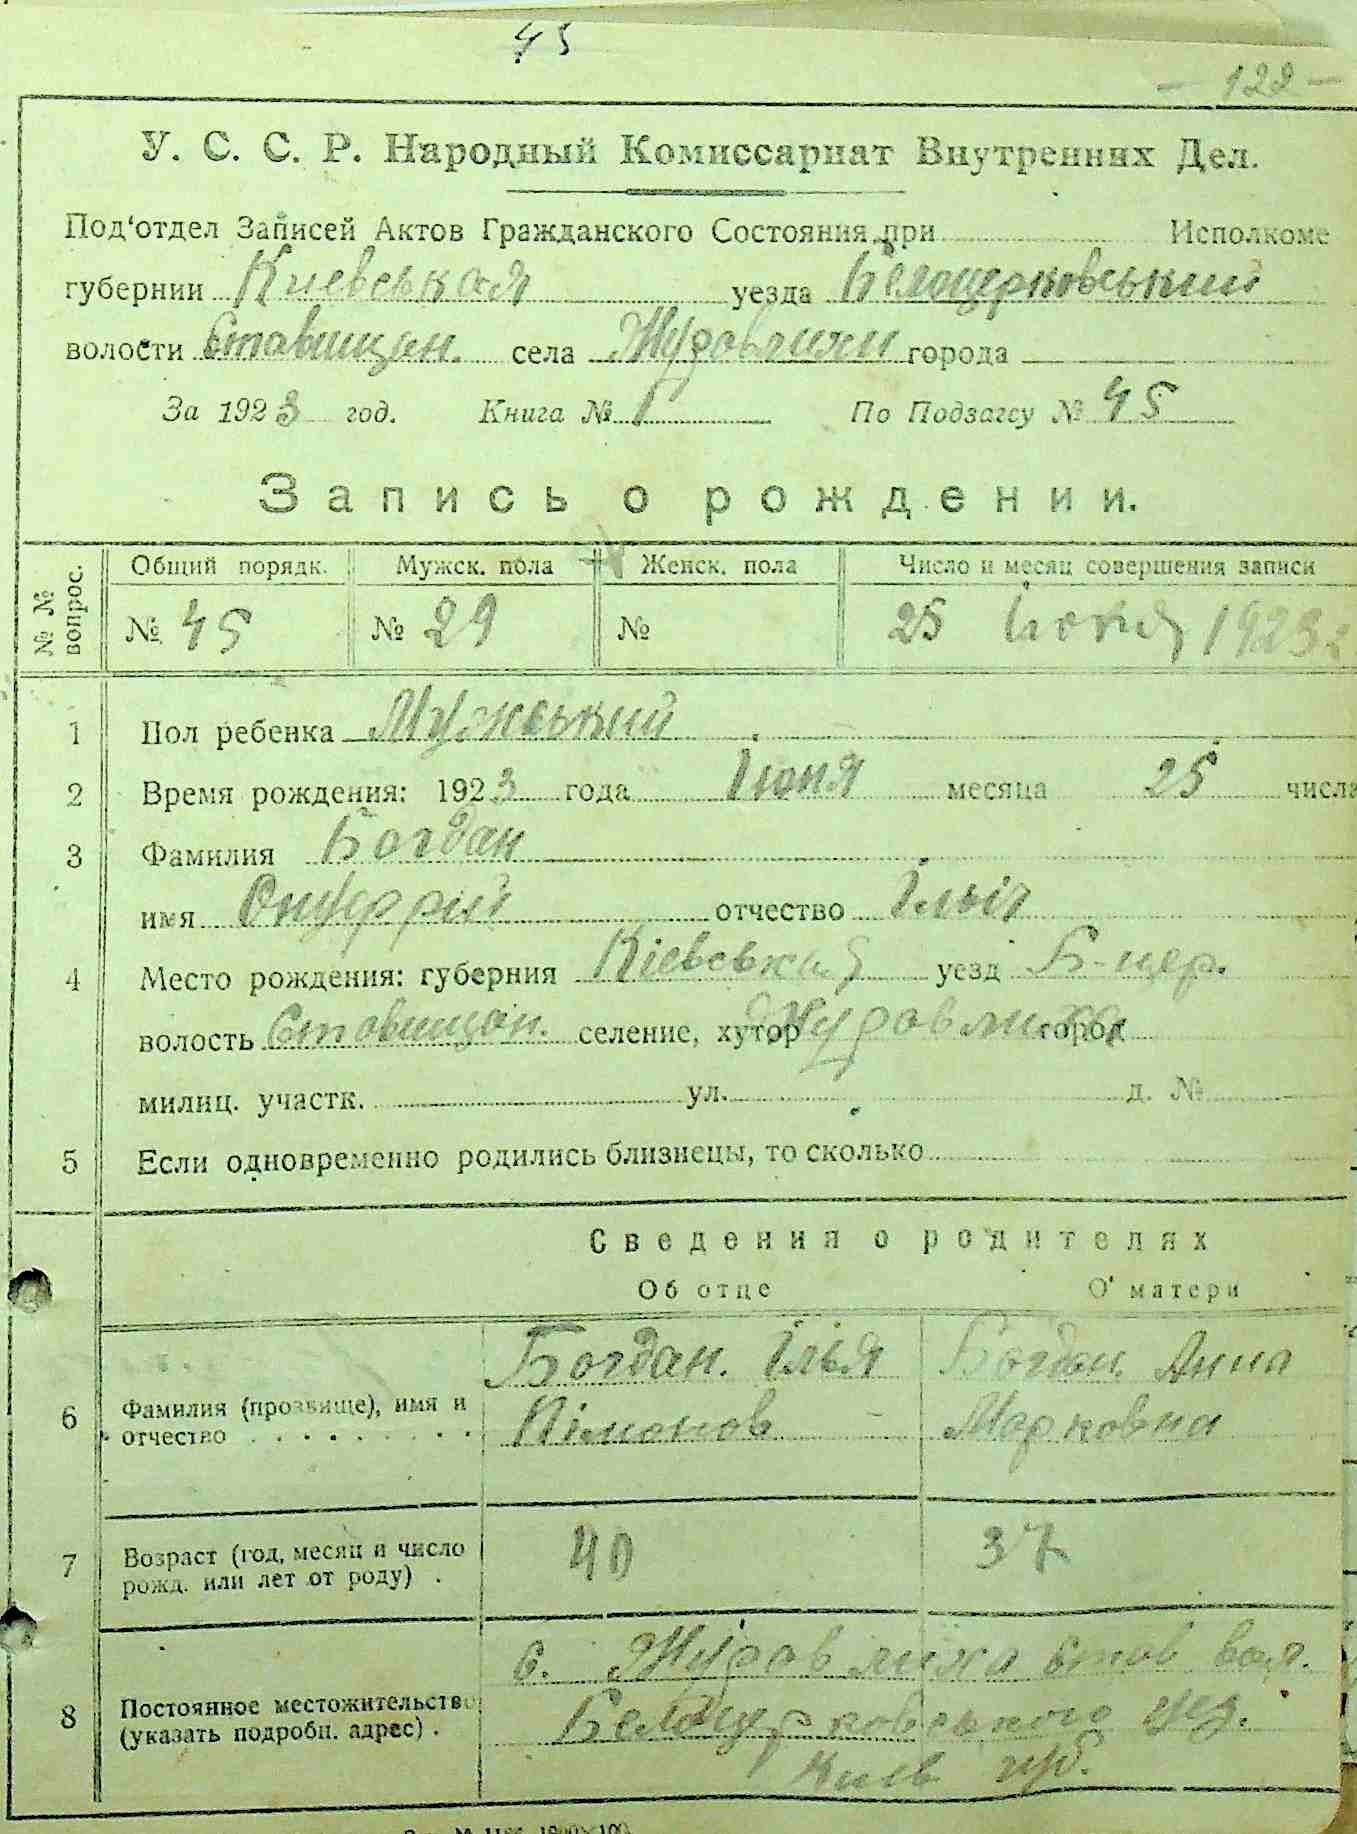 45
- 122 -
У. С. С. Р. Народный Комиссариат Внутренних Дел.
Под'отдел Записей Актов Гражданского Состояния при Исполкоме
губернии Киевськая уезда Белоцерковський
волости Ставищан. села Журавлихи города
За 1923 год. Книга № 1 По Подзагсу № 45
Запись о рождении.
№ № вопрос. Общий порядк. Мужск. пола Женск. пола Число и месяц совершения записи
№ 45 № 29 № 25 Июня 1923 г
1 Пол ребенка Мужський
2 Время рождения: 1923 года Іюня месяца 25 числа
3 Фамилия Богдан
имя Онуфрий отчество Ільіч
4 Место рождения: губерния Кіевськая уезд Б-цер.
волость Ставищан. селение, хутор Журавлиха город
милиц. участк. ул. д. №
5 Если одновременно родились близнецы, то сколько
Сведения о родителях
Об отце О матери
Богдан. Ілья Богдан. Анна
6 Фамилия (прозвище), имя и
отчество Пімонов Марковна
7 Возраст (год, месяц и число
рожд. или лет от роду) . 40 37
с. Журавлиха Став вол.
8 Постоянное местожительство
(указать подробн. адрес) . Белоцерковського уез.
Киев губ.